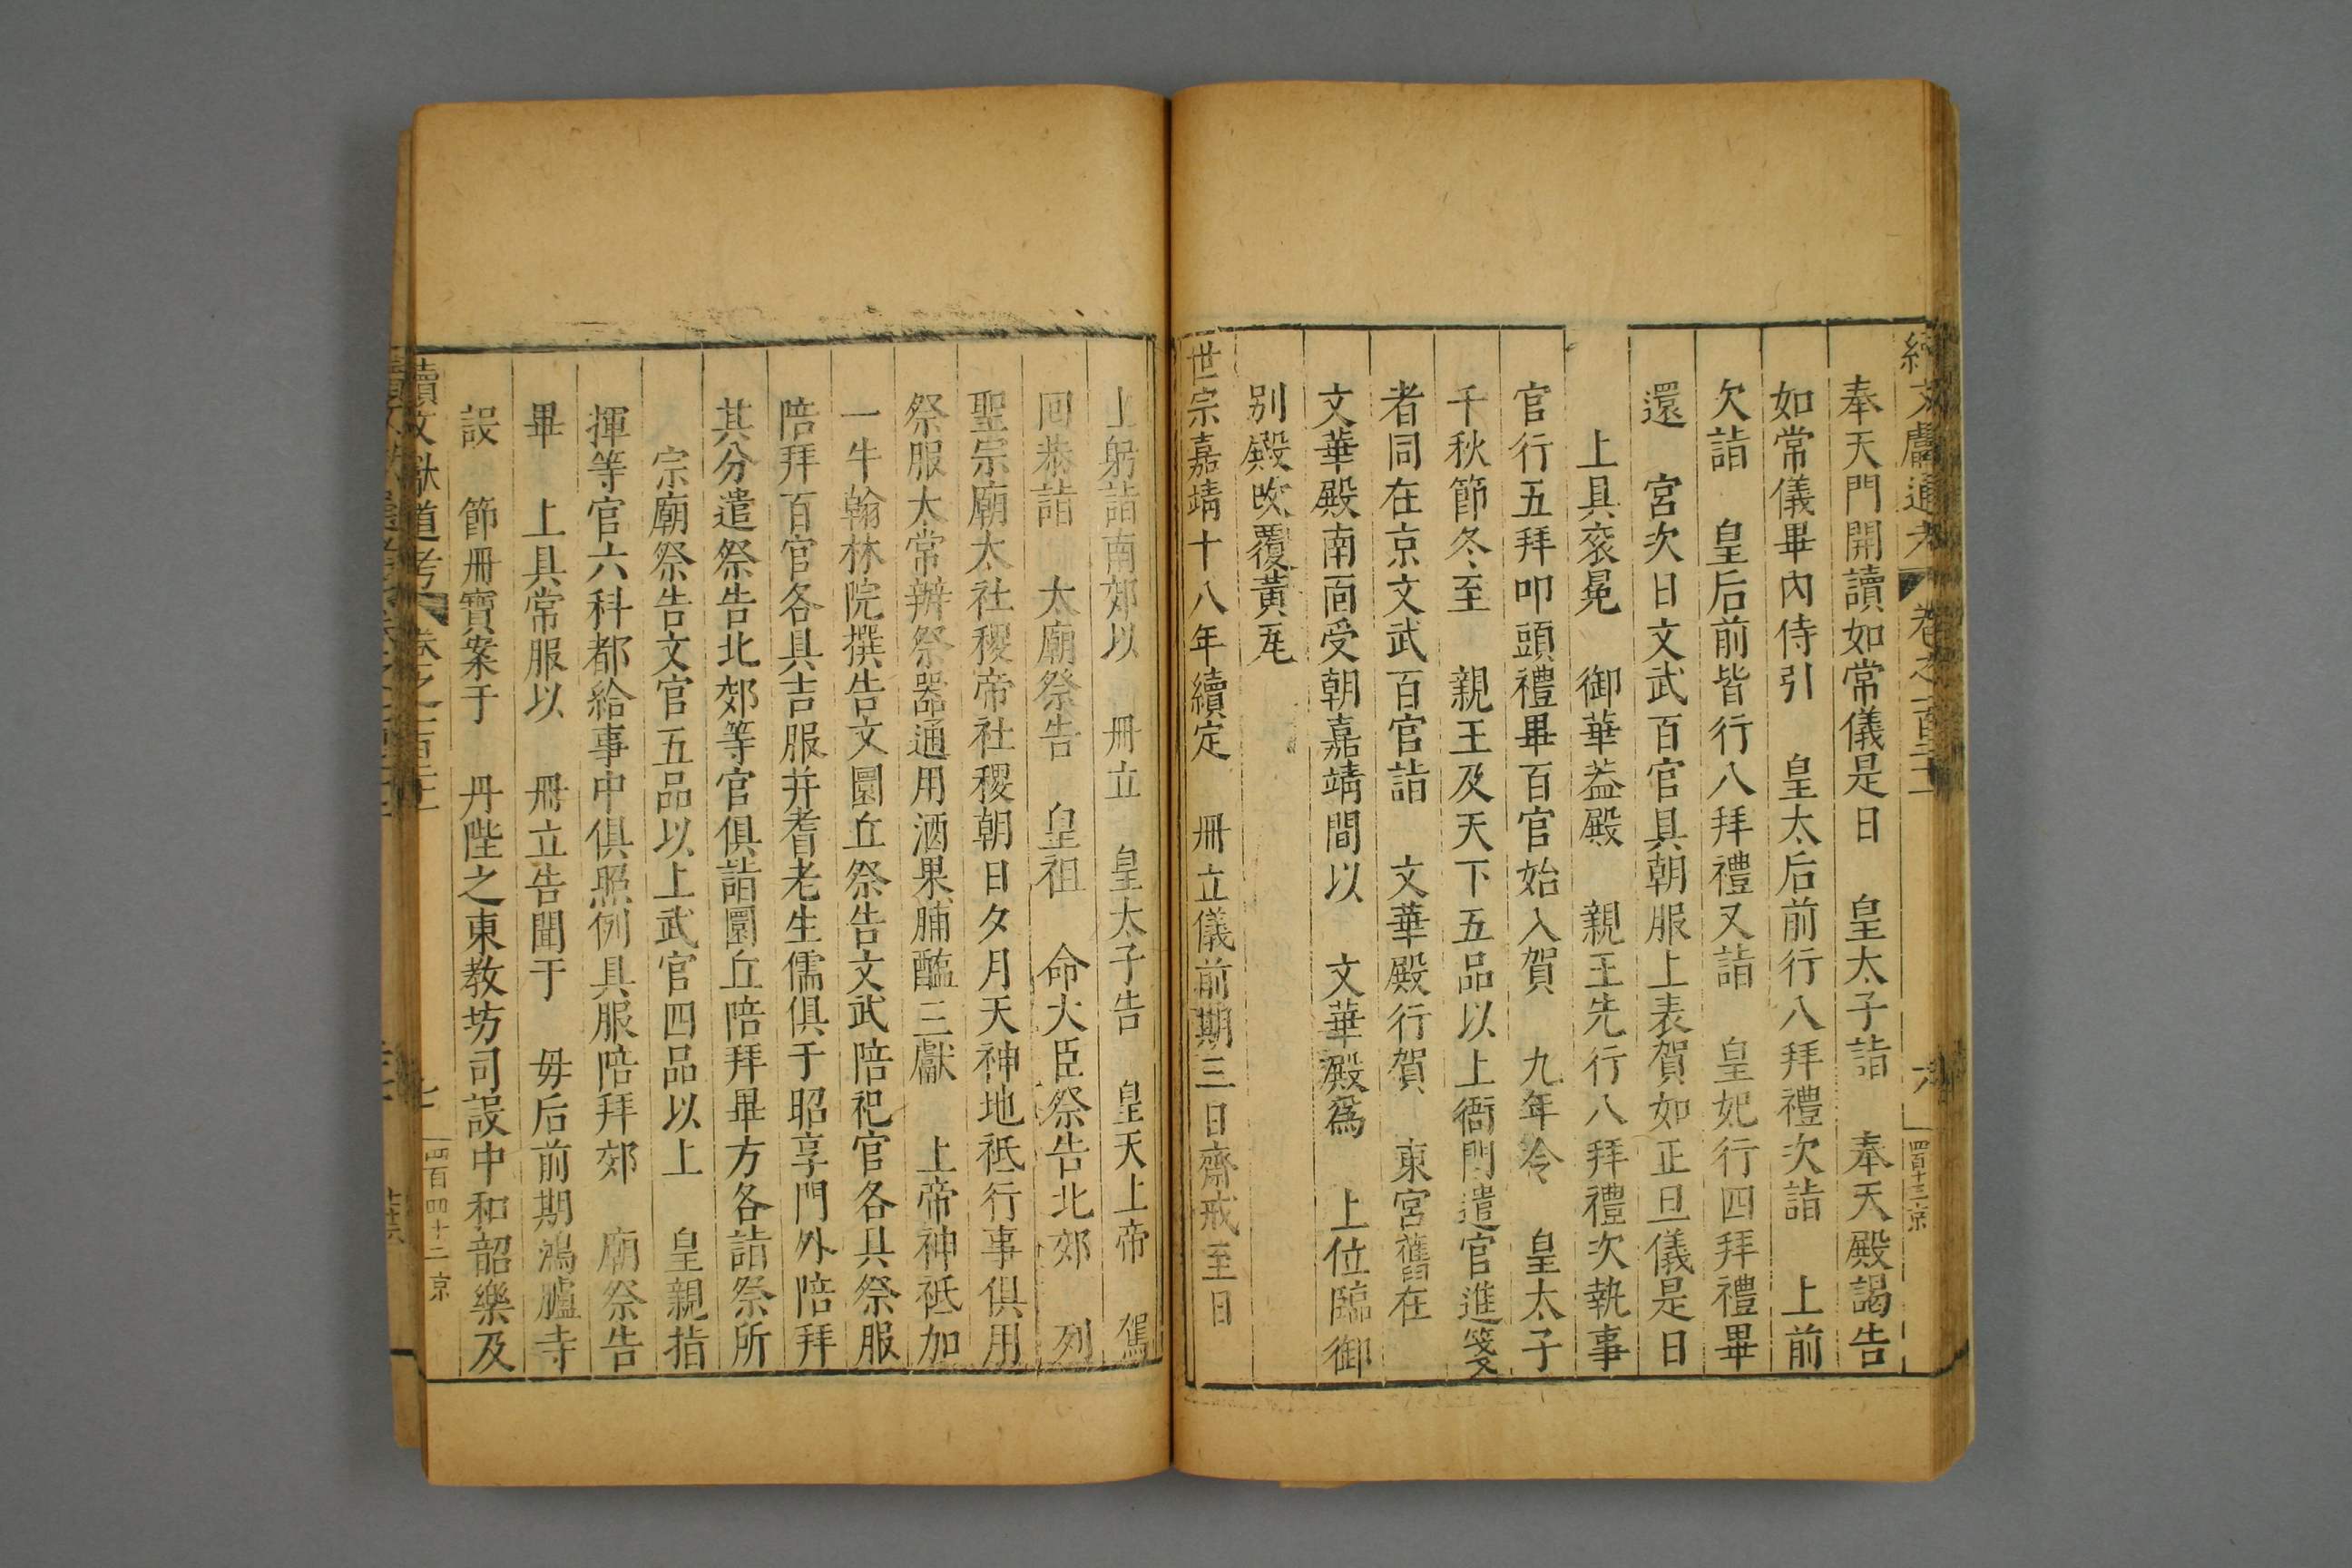 續文獻通考 卷之一百 六
奉天門開讀如常儀是日 皇太子詣 奉天殿謁告
如常儀畢內侍引 皇太后前行八拜禮次詣 上前
欠詣 皇后前皆行八拜禮又詣 皇妃行四拜禮畢
還 宮次日文武百官具朝服上表賀如正旦儀是日
上具衮冕 御華蓋殿 親王先行八拜禮次執事
官行五拜叩頭禮畢百官始入賀 九年冷 皇太子
千秋節冬至 親王及天下五品以上衙門遣官進箋
者同在京文武百官詣 文華殿行賀 東宮舊在
文華殿南面受朝嘉靖間以 文華殿爲 上位臨御
別殿改覆黃瓦
世宗嘉靖十八年續定 冊立儀前期三日齋戒至日
上躬詣南郊以 冊立 皇太子告 皇天上帝 駕
回恭詣 太廟祭告 皇祖 命大臣祭告北郊 列
聖宗廟太社稷帝社稷朝日夕月天神地祗行事俱用
祭服太常辦祭器通用酒果脯醢三獻 上帝神祗加
一牛翰林院撰告文圜丘祭告文武陪祀官各具祭服
陪拜百官各具吉服并耆老生儒俱于昭享門外陪拜
其分遣祭告北郊等官俱詣圜丘陪拜畢方各詣祭所
宗廟祭告文官五品以上武官四品以上 皇親指
揮等官六科都給事中俱照例具服陪拜郊 廟祭告
畢 上具常服以 冊立告聞于 毋后前期鴻臚寺
設 節冊寶案于 丹陛之東教坊司設中和韶樂及
續文獻通考 卷之一百 七 四百四十二 京